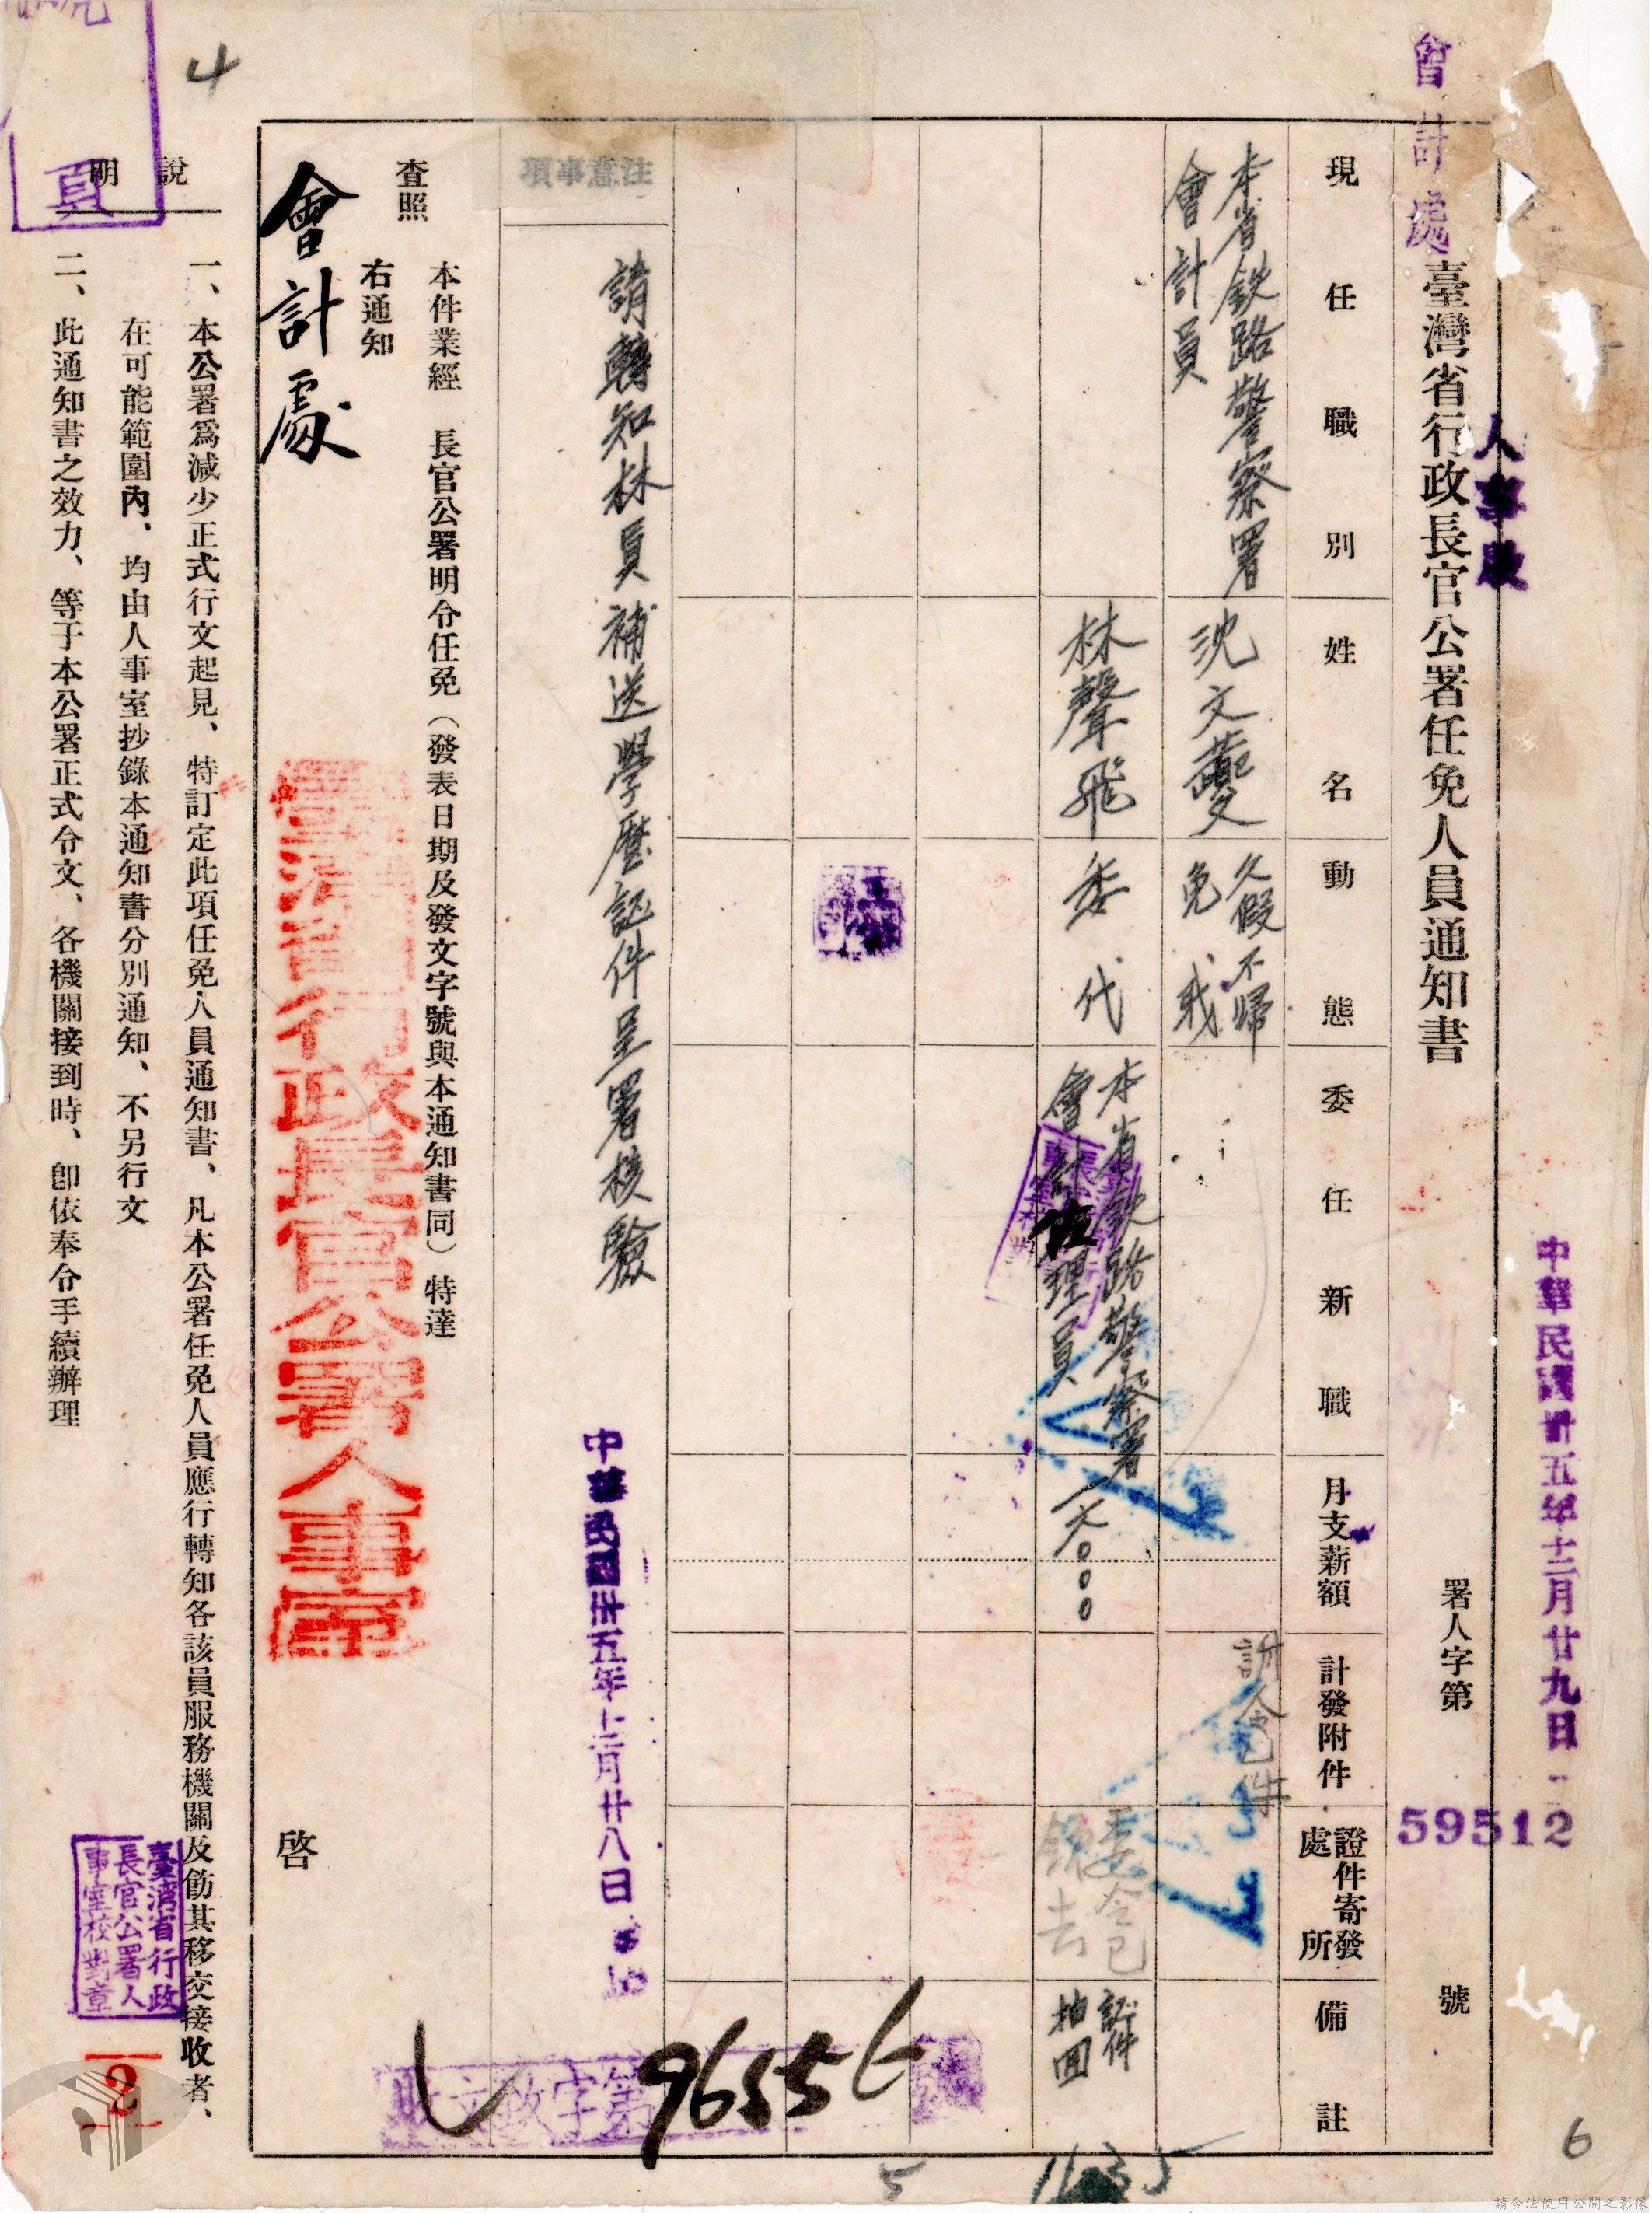 會計處
人事股
中華民國卅五年十二月廿九日
臺灣省行政長官公署任免人員通知書
署人字第
59512
號
現任職別
姓名
動態
委任新職
月支薪額
計發附件
證件寄發處所
備註
本省鉄路警察署
會計員
沈文夔
久假不歸
免职
訓令已件
林聲飛
委代
本省鉄路警察署
會計佐理員
一六〇〇〇
委令已
領去
証件
抽回
注意事項
請轉知林員補送學歷証件呈署核驗
中華民國卅五年十二月廿八日
本件業經 長官公署明令任免（發表日期及發文字號與本通知書同）特達
查照
右通知
會計處
啓
臺灣省行政長官公署人事室
收文政字第
96556
號
1635
5
6
4
說明
一、本公署爲減少正式行文起見、特訂定此項任免人員通知書、凡本公署任免人員應行轉知各該員服務機關及飭其移交接收者、
在可能範圍內、均由人事室抄錄本通知書分別通知、不另行文
二、此通知書之效力、等于本公署正式令文、各機關接到時、卽依奉令手續辦理
臺灣省行政
長官公署人
事室校對章
頁
2
請合法使用公開之影像